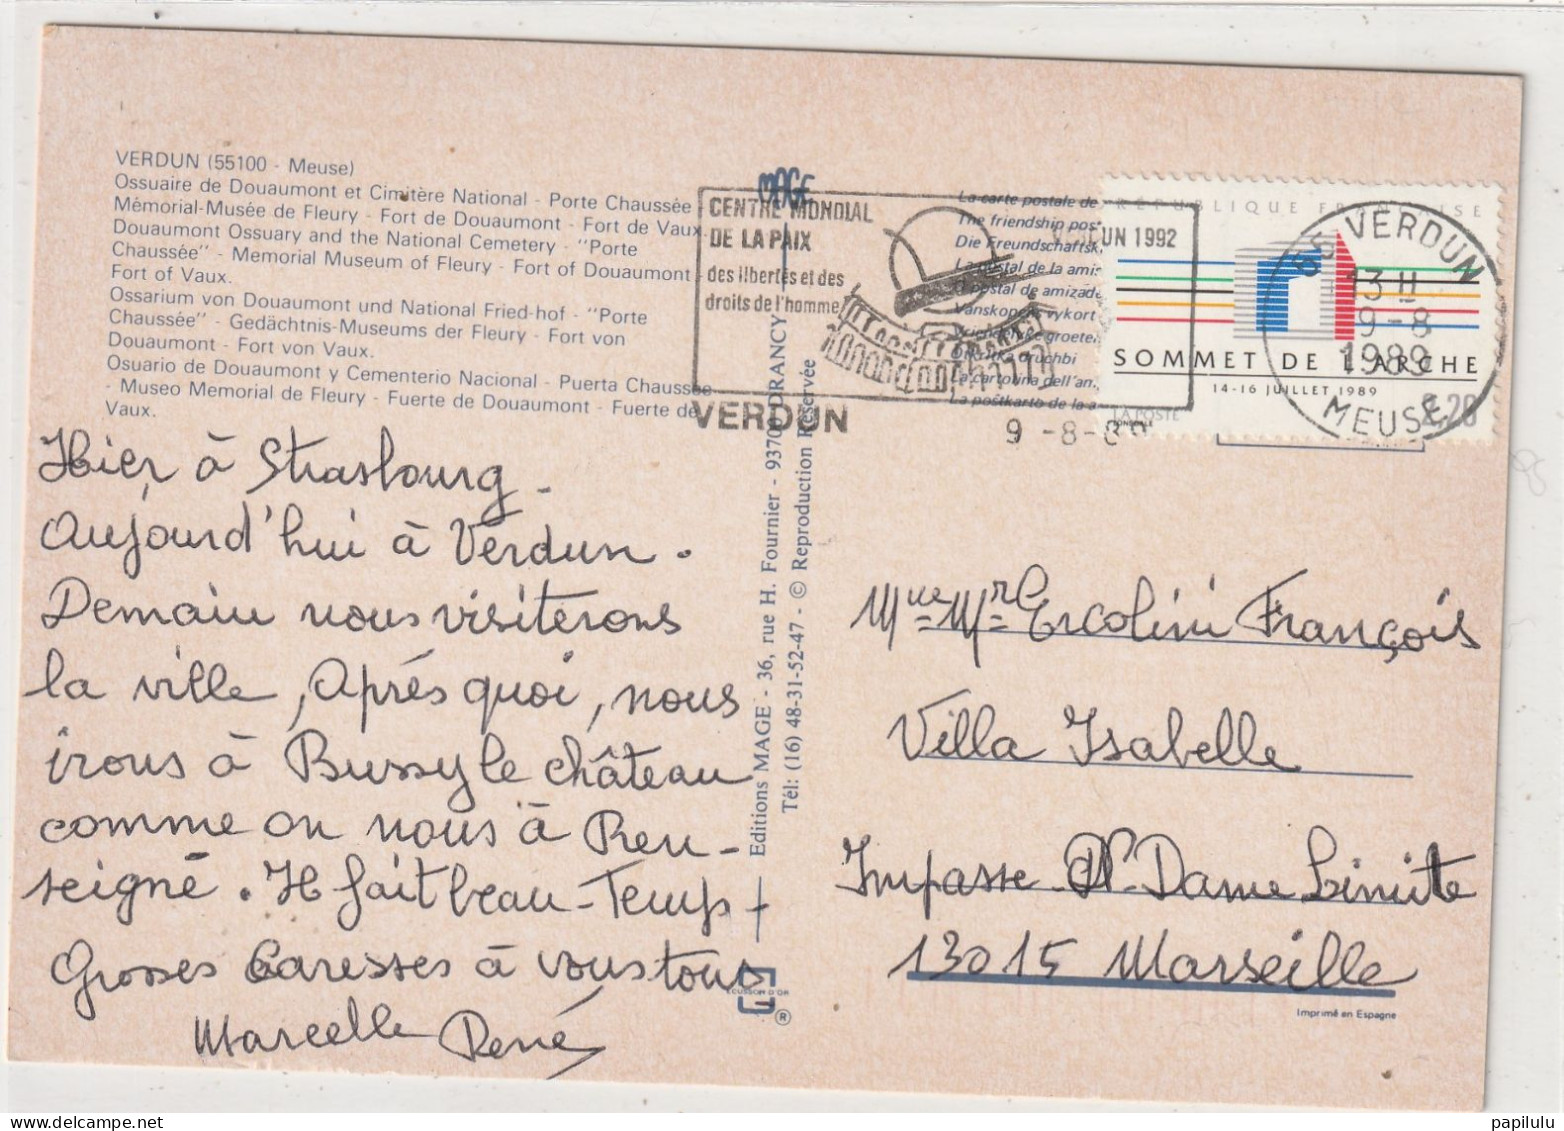 VERDUN (55100 - Meuse)
Ossuaire de Douaumont et Cimitère National - Porte Chaussée -
Mémorial-Musée de Fleury - Fort de Douaumont - Fort de Vaux.
Douaumont Ossuary and the National Cemetery - "Porte
Chaussée" - Memorial Museum of Fleury - Fort of Douaumont -
Fort of Vaux.
Ossarium von Douaumont und National Fried-hof - "Porte
Chaussée" - Gedächtnis-Museums der Fleury - Fort von
Douaumont - Fort von Vaux.
Osuario de Douaumont y Cementerio Nacional - Puerta Chaussée
- Museo Memorial de Fleury - Fuerte de Douaumont - Fuerte de
Vaux.
Hier, à Strasbourg -
Aujourd'hui à Verdun.
Demain nous visiterons
la ville, Après quoi, nous
irons à Bussy le château
comme on nous à Ren-
seigné. Il fait beau-Temps
Grosses Caresses à vous tous
Marcelle René
MAGE
Editions MAGE - 36, rue H. Fournier - 93700 DRANCY
Tél: (16) 48-31-52-47 - © Reproduction Réservée
ECUSSON D'OR
®
CENTRE MONDIAL
DE LA PAIX
des libertés et des
droits de l'homme
UN 1992
VERDUN
9 -8-89
La carte postale de
The friendship pos
Die Freundschaftsk
La postal de la amis
O postal de amizade
Vanskopets vykort
Vriendschap groeten
druchbi
La cartolina dell'am
La poŝtkarto de la a
RÉPUBLIQUE FRANÇAISE
SOMMET DE L'ARCHE
14-16 JUILLET 1989
LA POSTE
2,20
55 VERDUN
13 H
9-8
1989
MEUSE
Mme Mr Ercolini François
Villa Isabelle
Impasse N. Dame Limite
13015 Marseille
Imprimé en Espagne
papilulu